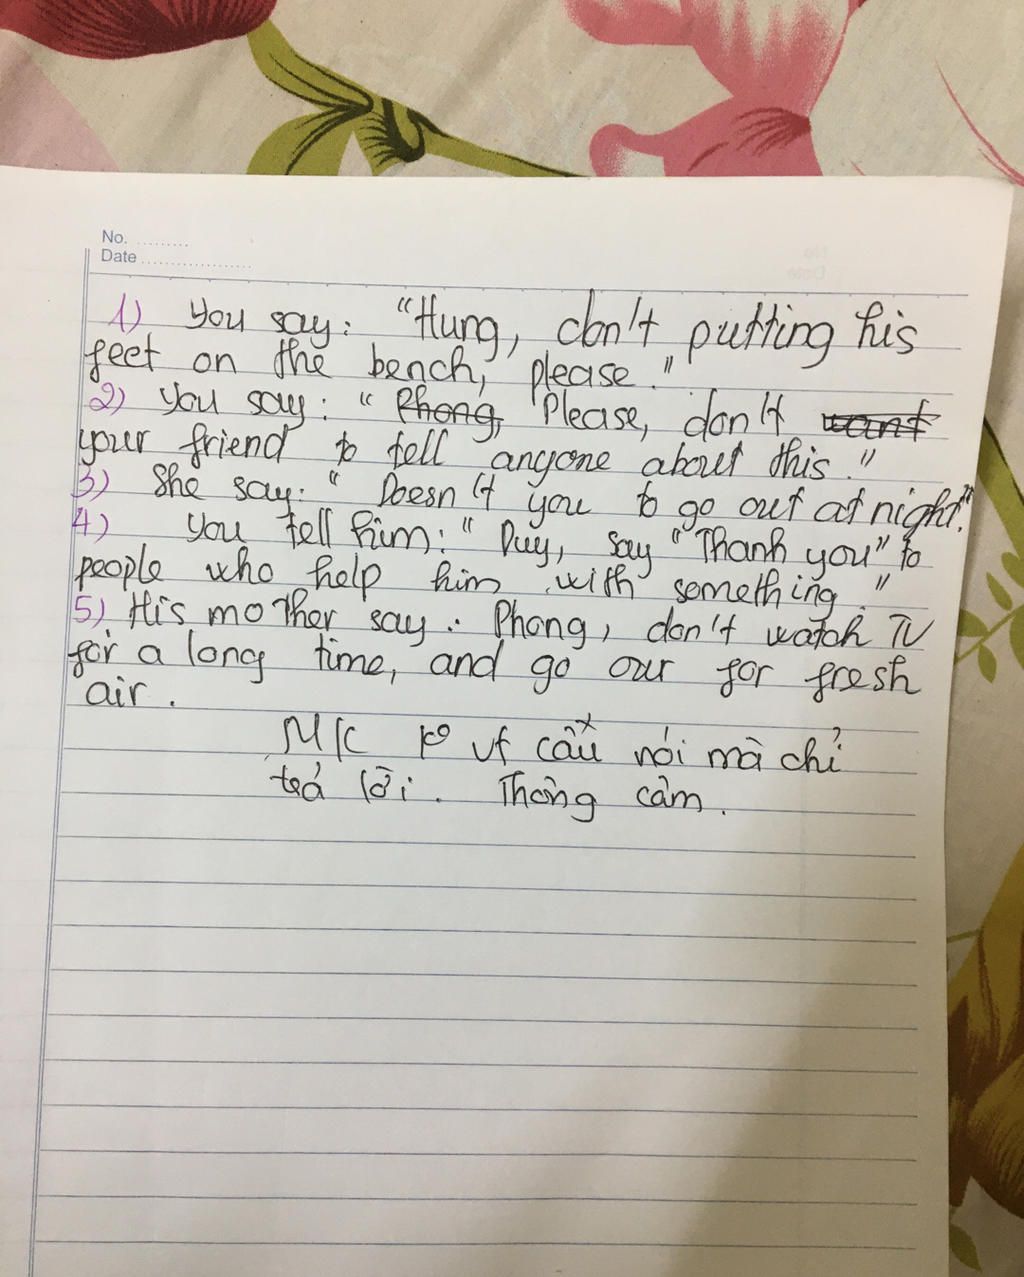 No. .........
Date ...................
1) You say: "Hung, don't putting his
feet on the bench, please."
2) You say: " Phong, Please, don't want
your friend to tell anyone about this."
3) She say: " Doesn't you to go out at night."
4) You tell him: " Duy, say "Thank you" to
people who help him with something."
5) His mother say : Phong, don't watch TV
for a long time, and go our for fresh
air.
M/C ko vt câu nói mà chỉ
trả lời. Thông cảm.